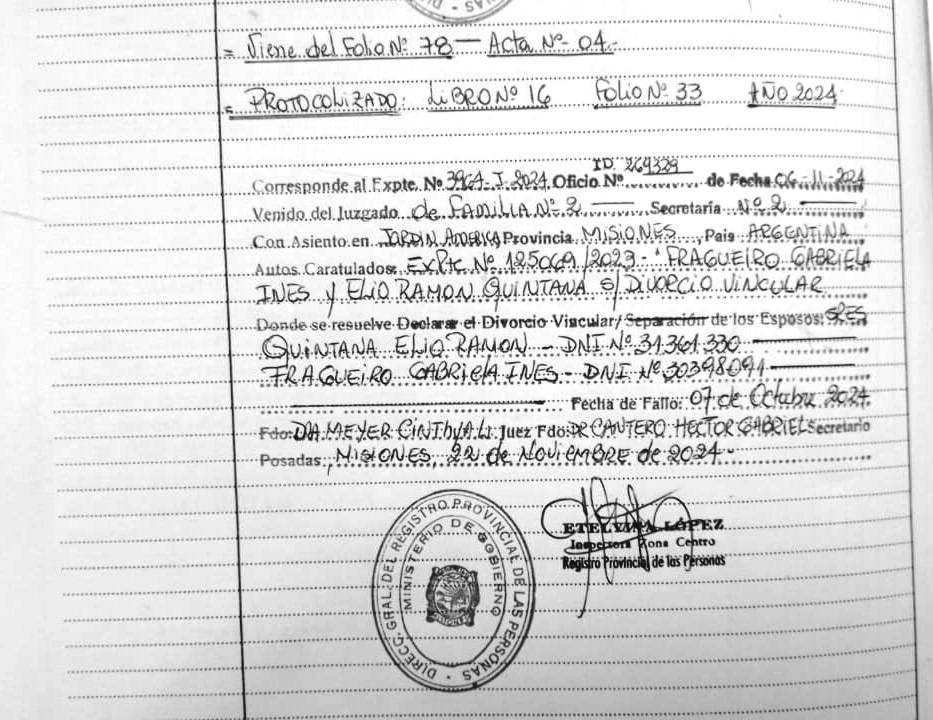 = Viene del Folio Nº 78 — Acta Nº- 04.
= PROTOCOLIZADO: LIBRO Nº 16 Folio Nº 33 AÑO 2024.
ID 269329
Corresponde al Expte. Nº 3964-I-2024 Oficio Nº ............ de Fecha 06-11-2024
Venido del Juzgado de FAMILIA Nº 2 — Secretaría Nº 2 —
Con Asiento en JARDIN AMERICA Provincia MISIONES, Pais ARGENTINA
Autos Caratulados: EXPte Nº 125069/2023- "FRAGUEIRO GABRIELA
INES y ELIO RAMON QUINTANA s/ DIVORCIO VINCULAR
Donde se resuelve Declarar el Divorcio Vincular/ Separación de los Esposos: SRES
QUINTANA ELIO RAMON - DNI Nº 31361330 —
FRAGUEIRO GABRIELA INES - DNI Nº 30398091 —
— Fecha de Fallo: 07 de Octubre 2024
Fdo: DRA MEYER CINTHYA LI Juez Fdo: DR CANTERO HECTOR GABRIEL Secretario
Posadas, MISIONES, 22 de NOVIEMBRE de 2024-
ETELVINA LOPEZ
Inspectora Zona Centro
Registro Provincial de las Personas
DIRECC. GRAL. DEL REGISTRO PROVINCIAL DE LAS PERSONAS
MINISTERIO DE GOBIERNO
MISIONES